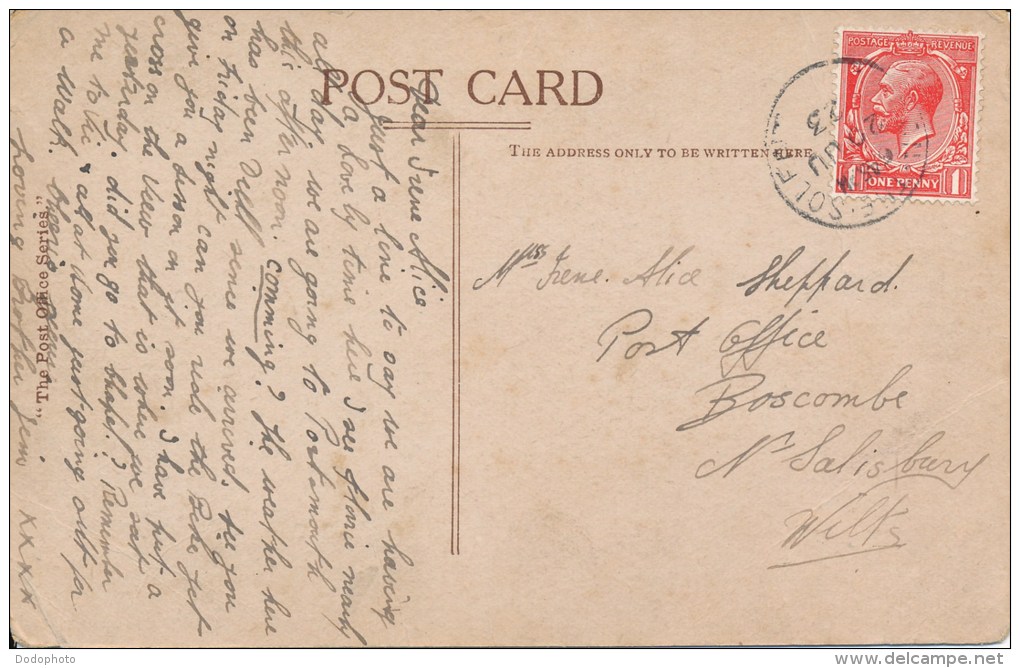 POST CARD
THE ADDRESS ONLY TO BE WRITTEN HERE
POSTAGE REVENUE
1 ONE PENNY 1
23
Miss Irene Alice Sheppard.
Post Office
Boscombe
Nr Salisbury
Wilts
Dear Irene Alice
Just a line to say we are having
a love by time here I see Florie nearly
all day. we are going to Portsmouth
this afternoon. Comming? The weather here
has been Dull since we arrived. See you
on Friday night can you ride the Bike yet
give you a lesson on it soon. I have put a
cross on the View that is where we sat
yesterday. did you go to Chapel? Remember
me to the at Home just going out for
a Walk. Cheerio
Loving Brother Jim xxxx
"The Post Office Series."
Dodophoto
delcampe.net